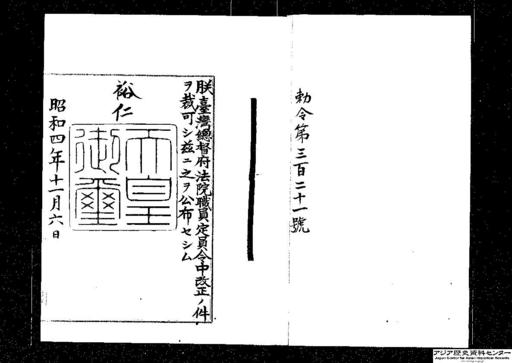 勅令第三百二十一號
朕臺灣總督府法院職員定員令中改正ノ件
ヲ裁可シ茲ニ之ヲ公布セシム
裕仁
天皇
御璽
昭和四年十一月六日
アジア歴史資料センター
Japan Center for Asian Historical Records